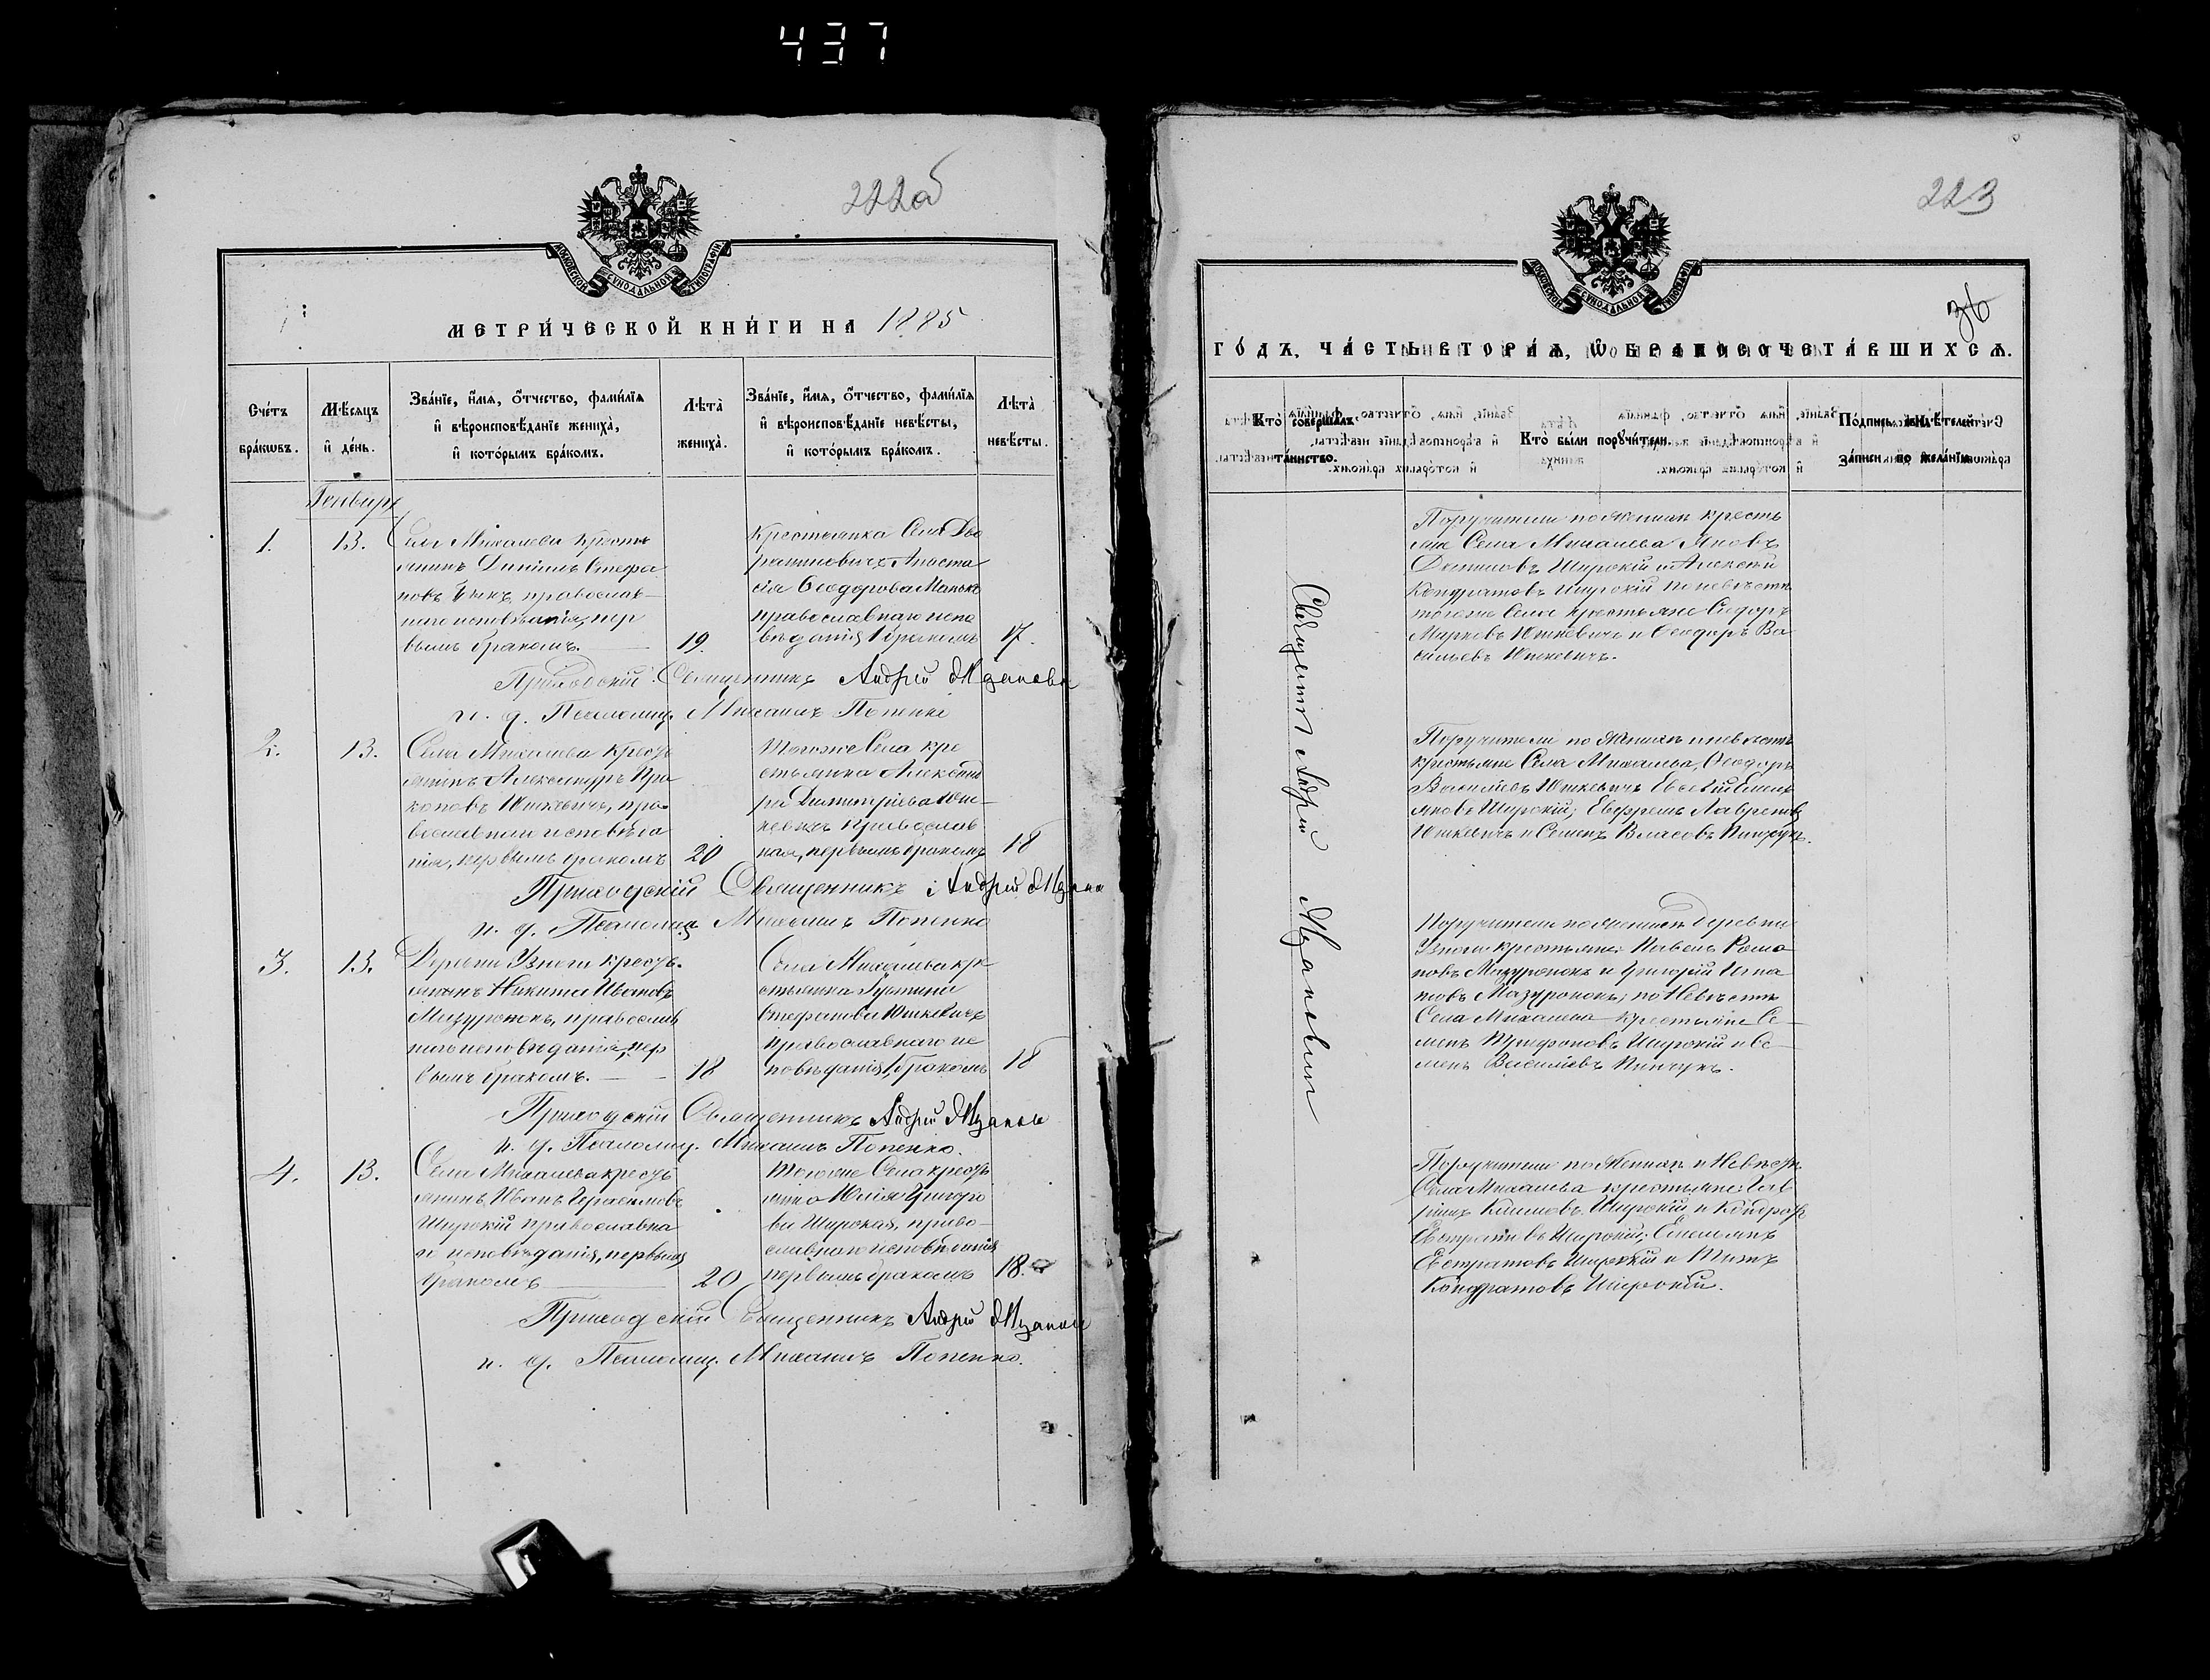 437
222об
МОСКОВСКОЙ СѴНОДАЛЬНОЙ ТИПОГРАФІИ
МЕТРИ́ЧЕСКОЙ КНИ́ГИ НА 1885
Сче́тъ бра́кѡвъ.
Мѣ́сяцъ и҆ де́нь.
Зва́нїе, и҆́мя, ѻ҆́тчество, фами́лїя
и҆ вѣ́роисповѣ́данїе жениха̀,
и҆ кото́рымъ бра́комъ.
Лѣта̀ жениха̀.
Зва́нїе, и҆́мя, ѻ҆́тчество, фами́лїя
и҆ вѣ́роисповѣ́данїе невѣ́сты,
и҆ кото́рымъ бра́комъ.
Лѣта̀ невѣ́сты.
Генварь
1.
13.
Села Михалева Кресть
янинъ Даніилъ Стефа
новъ православ-
наго исповѣданія, пер
вымъ бракомъ.
19.
Крестьянка Села
Анаста
сія Ѳеодорова
православнаго испо
вѣданія 1 бракомъ
17.
Приходскій Священникъ Андрей
и. д. Псаломщ. Михаилъ Попенко
2.
13.
Села Михалева Кресть
янинъ Александръ Про
коповъ Юшкевичъ, пра-
вославнаго исповѣда
нія, первымъ бракомъ
20
Тогоже Села кре
стьянка Александ
ра Димитріева Юш-
кевичъ православ
ная, первымъ бракомъ
18
Приходскій Священникъ Андрей
и. д. Псаломщ. Михаилъ Попенко
3.
13.
Деревни Узноги кресть-
янинъ Никита Ивановъ
Мазуронокъ, православ
наго исповѣданія, пер
вымъ бракомъ.
18
Села Михалева кре
стьянка Іустина
Стефанова Юшкевичъ
Православнаго ис
повѣданія, 1 бракомъ
18
Приходскій Священникъ Андрей
и. д. Псаломщ. Михаилъ Попенко.
4.
13.
Села Михалева кресть
янинъ Иванъ Герасимовъ
Широкій православна
го исповѣданія, первымъ
бракомъ
20
Тогоже Села кресть
янка Юлія Григорь
ва Широкая, право-
славнаго исповѣданія
первымъ бракомъ
18.
Приходскій Священникъ Андрей
и. д. Псаломщ. Михаилъ Попенко.
223
МОСКОВСКОЙ СѴНОДАЛЬНОЙ ТИПОГРАФІИ
36
ГО́ДЪ, ЧА́СТЬ ВТОРА́Я, Ѽ БРАКОСОЧЕТА́ВШИХСЯ.
Кто̀ соверша́лъ та́инство.
Кто̀ бы́ли порꙋчи́тели.
По́дпись свидѣ́телей
за́писи по жела́нїю.
Священникъ Андрей
Поручители по женихѣ кресть
яне Села Михалева Яковъ
Даниловъ Широкій и Алексѣй
Кондратовъ Широкій по невѣстѣ
тогоже Села Крестьяне Сидоръ
Марковъ Юшкевичъ и Ѳеодоръ Ва
сильевъ Юшкевичъ.
Поручители по Женихѣ и невѣстѣ
крестьяне Села Михалева, Ѳеодоръ
Васильевъ Юшкевичъ Евсевій Емель
яновъ Широкій; Евфремъ Лаврентъ
Юшкевичъ и Семенъ Власовъ Пинчукъ.
Поручители по женихѣ Деревни
Узноги крестьяне: Павелъ Рома
новъ Мазуронокъ и Григорій Игна
товъ Мазуронокъ; по Невѣстѣ
Села Михалева крестьяне Се-
менъ Трифоновъ Широкій и Се-
менъ Васильевъ Пинчукъ.
Поручители по Женихѣ и Невѣстѣ
Села Михалева крестьяне: Гав
ріилъ Климовъ Широкій и Кондрат
Евстратовъ Широкій; Емельянъ
Евстратовъ Широкій и Титъ
Кондратовъ Широкій.